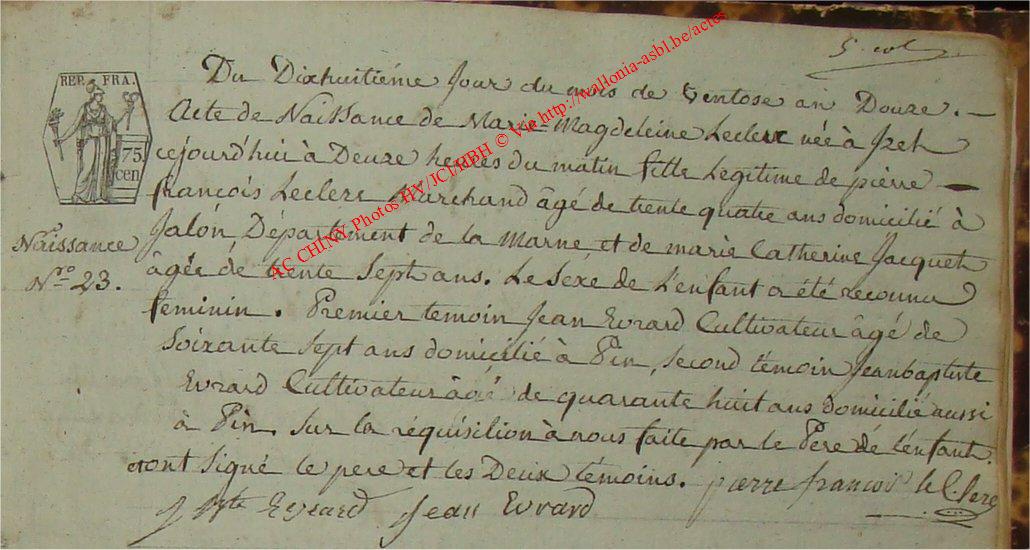 5. col
REP. FRA.
75.
cen.
Naissance
Nro. 23.
Du Dixhuitiéme Jour du mois de Ventose an Douze. —
Acte de Naissance de Marie-Magdeleine Leclerc née à Izel
cejourd'hui à Deuze heures du matin fille Legitime de pierre —
françois Leclerc Marchand âgé de trente quatre ans domicilié à
Jalón, Département de la Marne, et de marie Catherine Jacquet
âgée de trente Sept ans. Le Sexe de L'enfant a été reconnu
feminin. Premier temoin Jean Evrard Cultivateur âgé de
Soixante Sept ans domicilié à Pin, second témoin Jeanbaptiste
Evrard Cultivateur âgé de quarante huit ans domicilié aussi
à Pin. Sur la réquisition à nous faite par le Père de l'enfant.
et ont Signé le pere et les Deux témoins. pierre françois le Clere
J Bte Evrard Jean Evrard
AC CHINY Photos HY/JCH/HBH © Via http://wallonia-asbl.be/actes